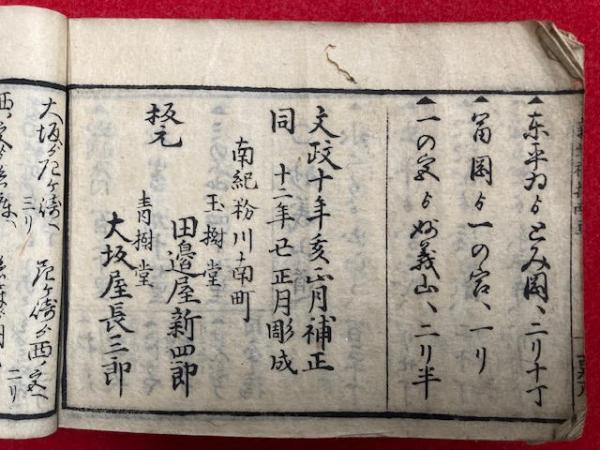 ▲東平ゟとみ岡へ二リ十丁
▲冨岡ゟ一の宮へ一リ
▲一の宮ゟ妙義山へ二リ半
文政十年亥正月補正
同 十二年丑正月彫成
南紀粉川南町
玉樹堂
板元 田邉屋新四郎
青樹堂
大坂屋長三郎
大坂ゟ尼ヶ崎へ
三リ
尼ヶ崎ゟ西ノ宮へ
二リ